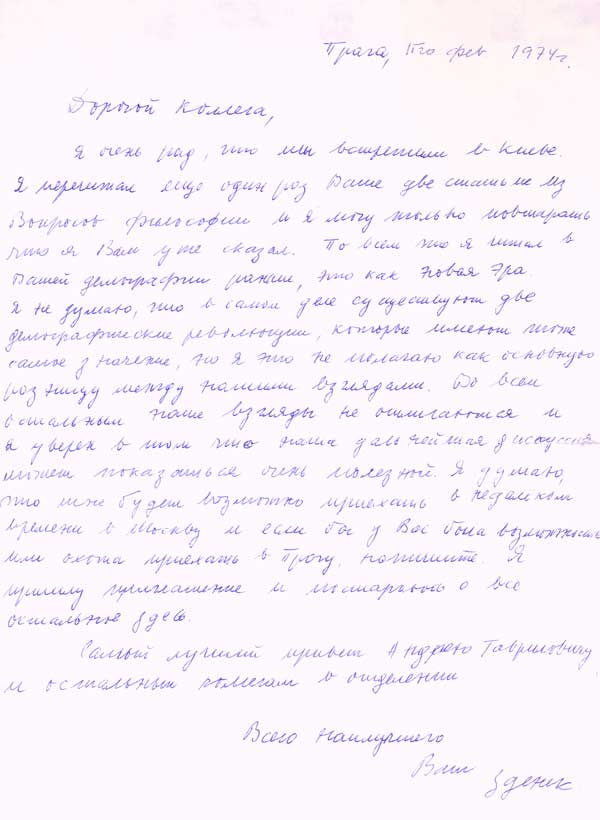 Прага, фев 1974г.
Дорогой коллега,
Я очень рад, что мы встретили в Киеве.
Я перечитал еще один раз Ваше две статьи из
Вопросов философии и я могу только повторять
что я Вам уже сказал. По всем что я читал в
Вашей демографии раньше, это как новая эра.
Я не думаю, что в самом деле существуют две
демографические революции, которые имеют тоже
самое значение, но я это не полагаю как основную
разницу между нашими взглядами. Во всем
остальным наше взгляды не отличаются и
я уверен в том что наша дальнейшая дискуссия
может показаться очень полезной. Я думаю,
что мне будет возможно приехать в недалеком
времени в Москву и если бы у Вас была возможность
или охота приехать в Прагу, напишите. Я
пришлю приглашение и постараюсь о все
остальное здесь.
Самый лучший привет Андрею Гавриловичу
и остальным колегам в отделении
Всего наилучшего
Ваш
Зденек